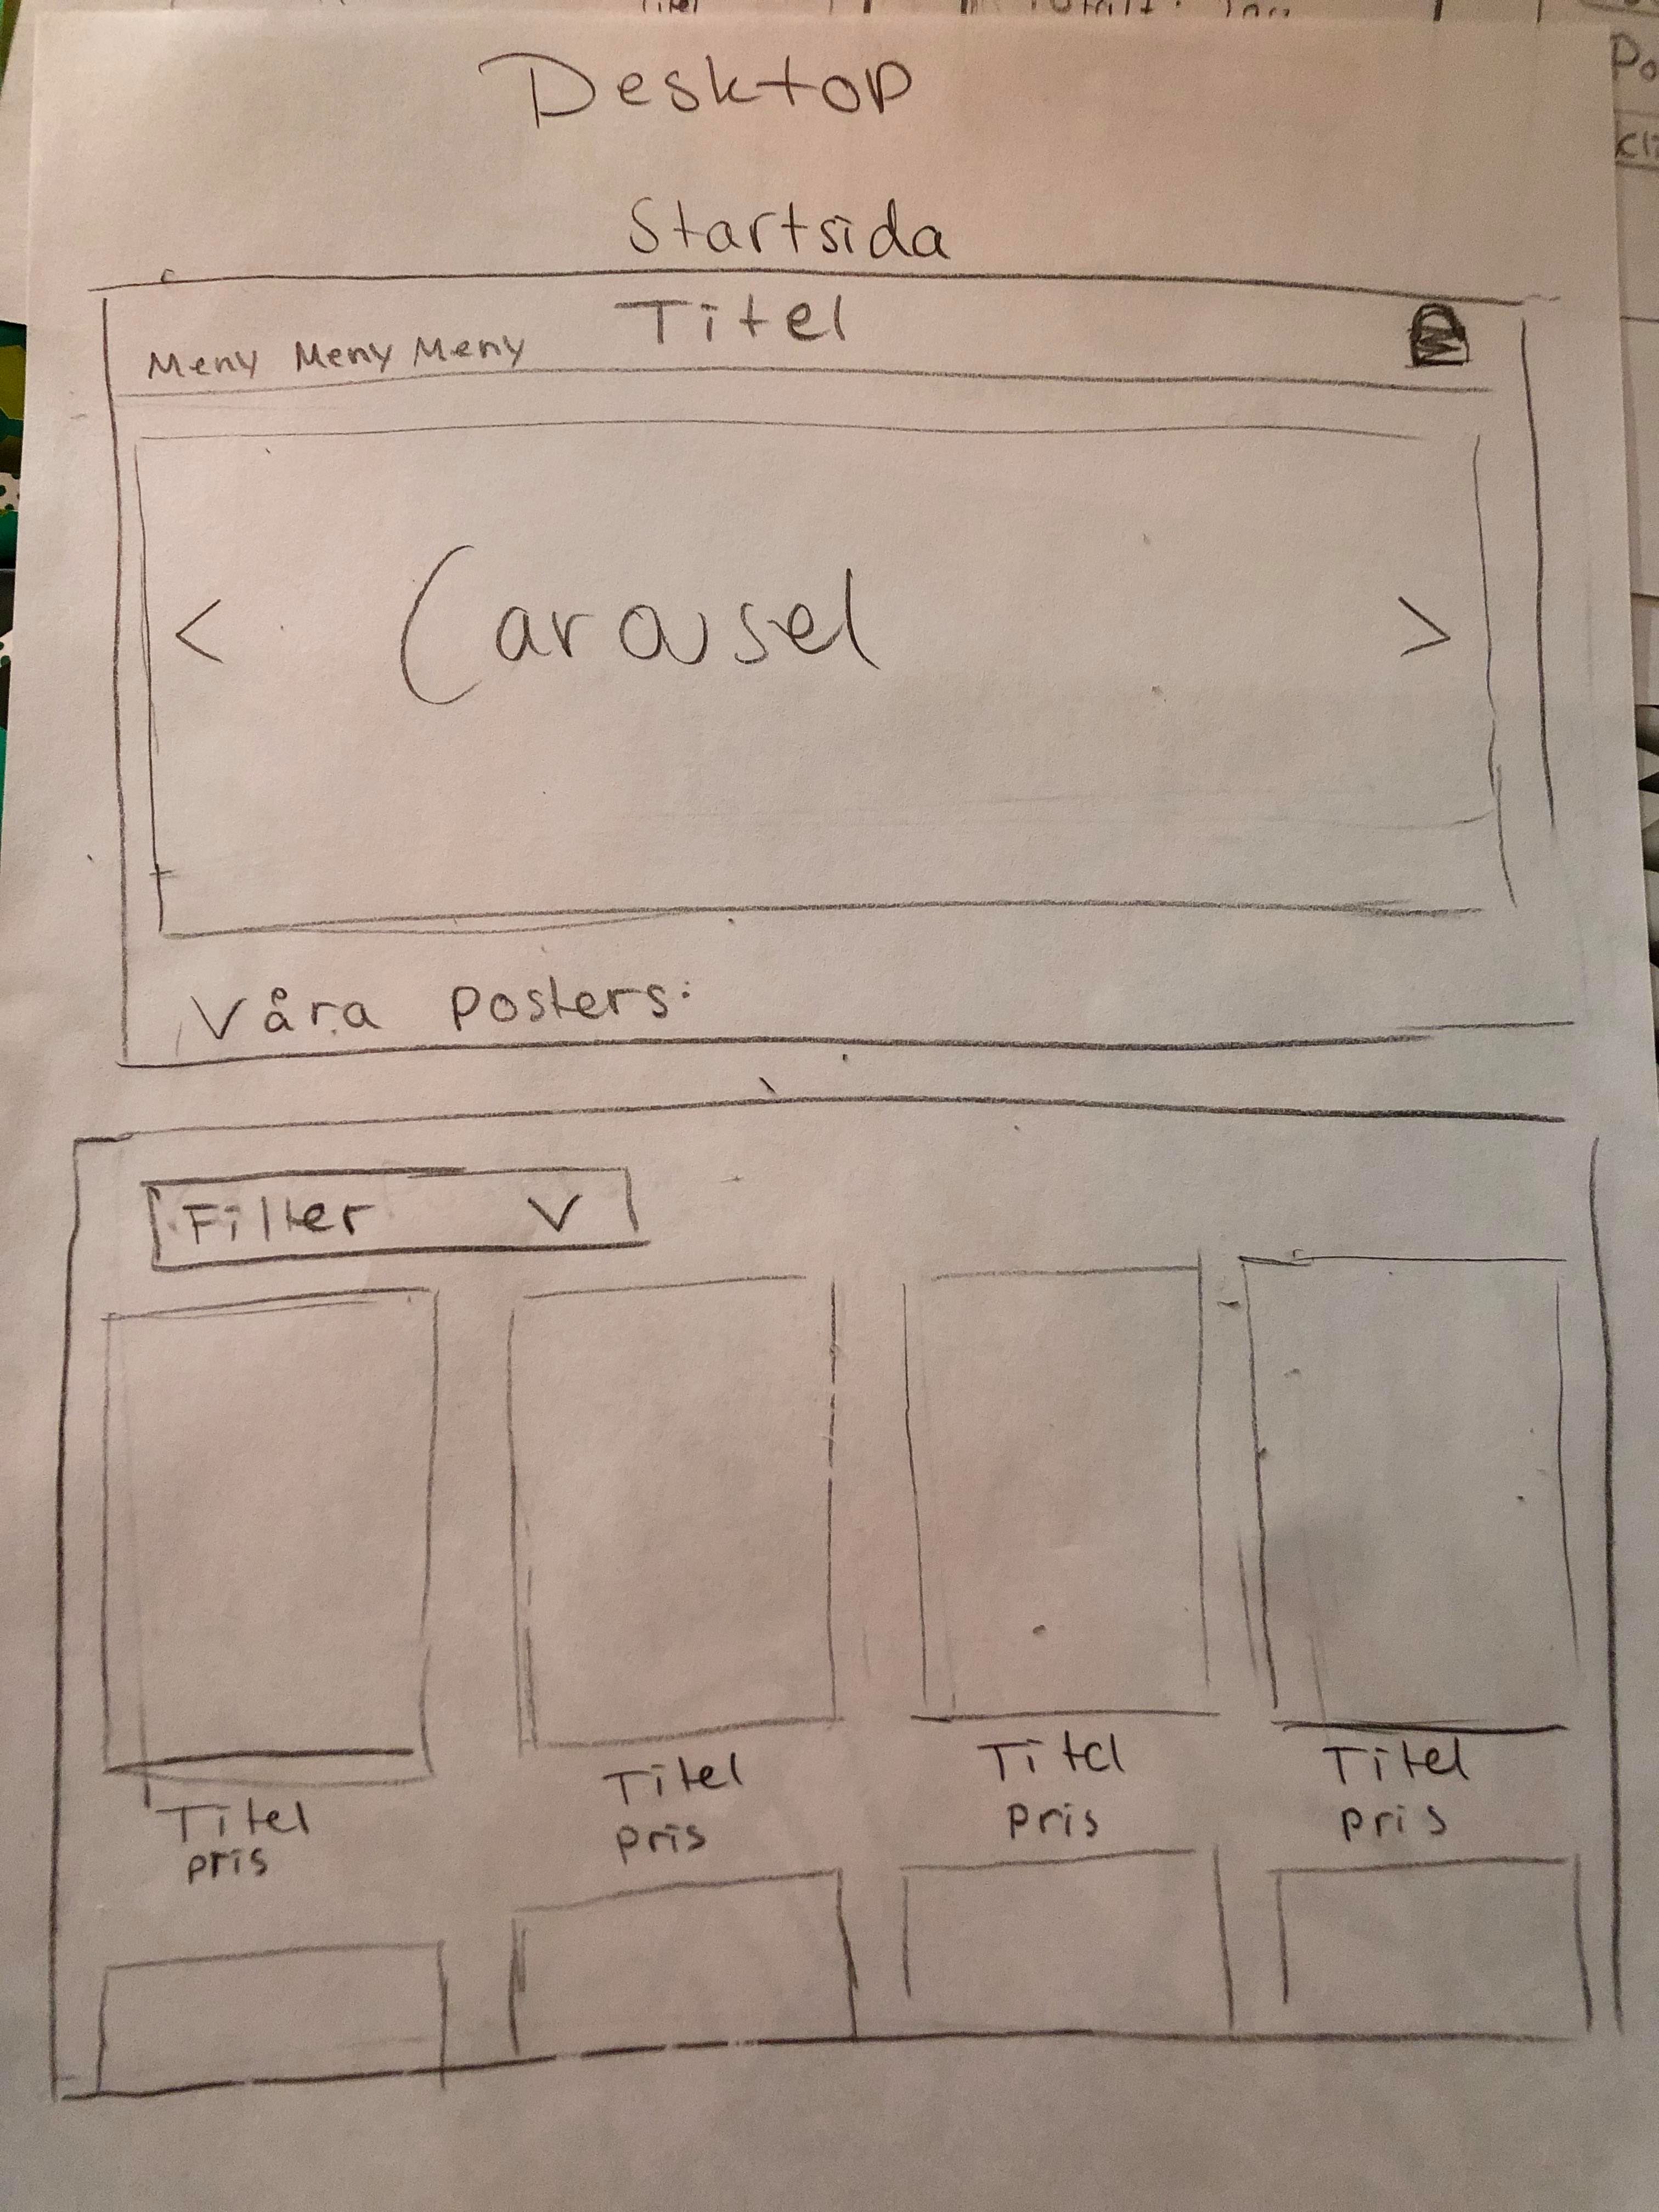 Desktop
Startsida
Titel
Meny Meny Meny
< Carousel >
Våra posters:
Filter V
Titel Titel Titel Titel
pris pris pris pris